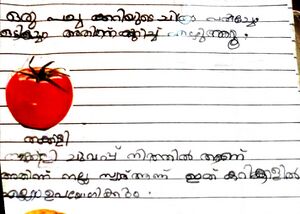 ഒരു പച്ച ക്കറിയുടെ ചിത്രം
അതിനെക്കുറിച്ച് എഴുതുക.
തക്കാളി
തക്കാളി ചുവപ്പ് നിറത്തിൽ ആണ്
അതിന് നല്ല സ്വാദ്ആണ് ഇത് കറികളിൽ
ഉപയോഗിക്കും.